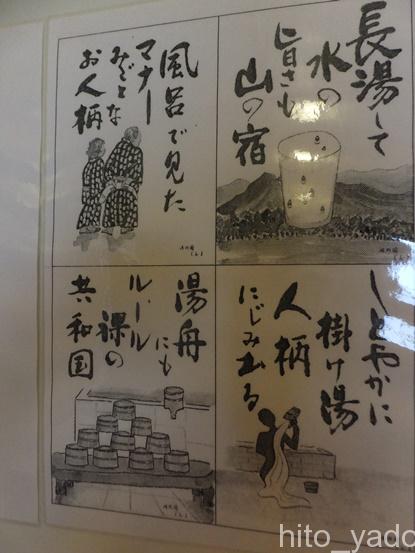 長湯して
水の
旨さも
山の宿
風呂で見た
マナー
みごとな
お人柄
しとやかに
掛け湯
人柄
にじみ出る
湯舟
にも
ルール
裸の
共和国
hito_yado